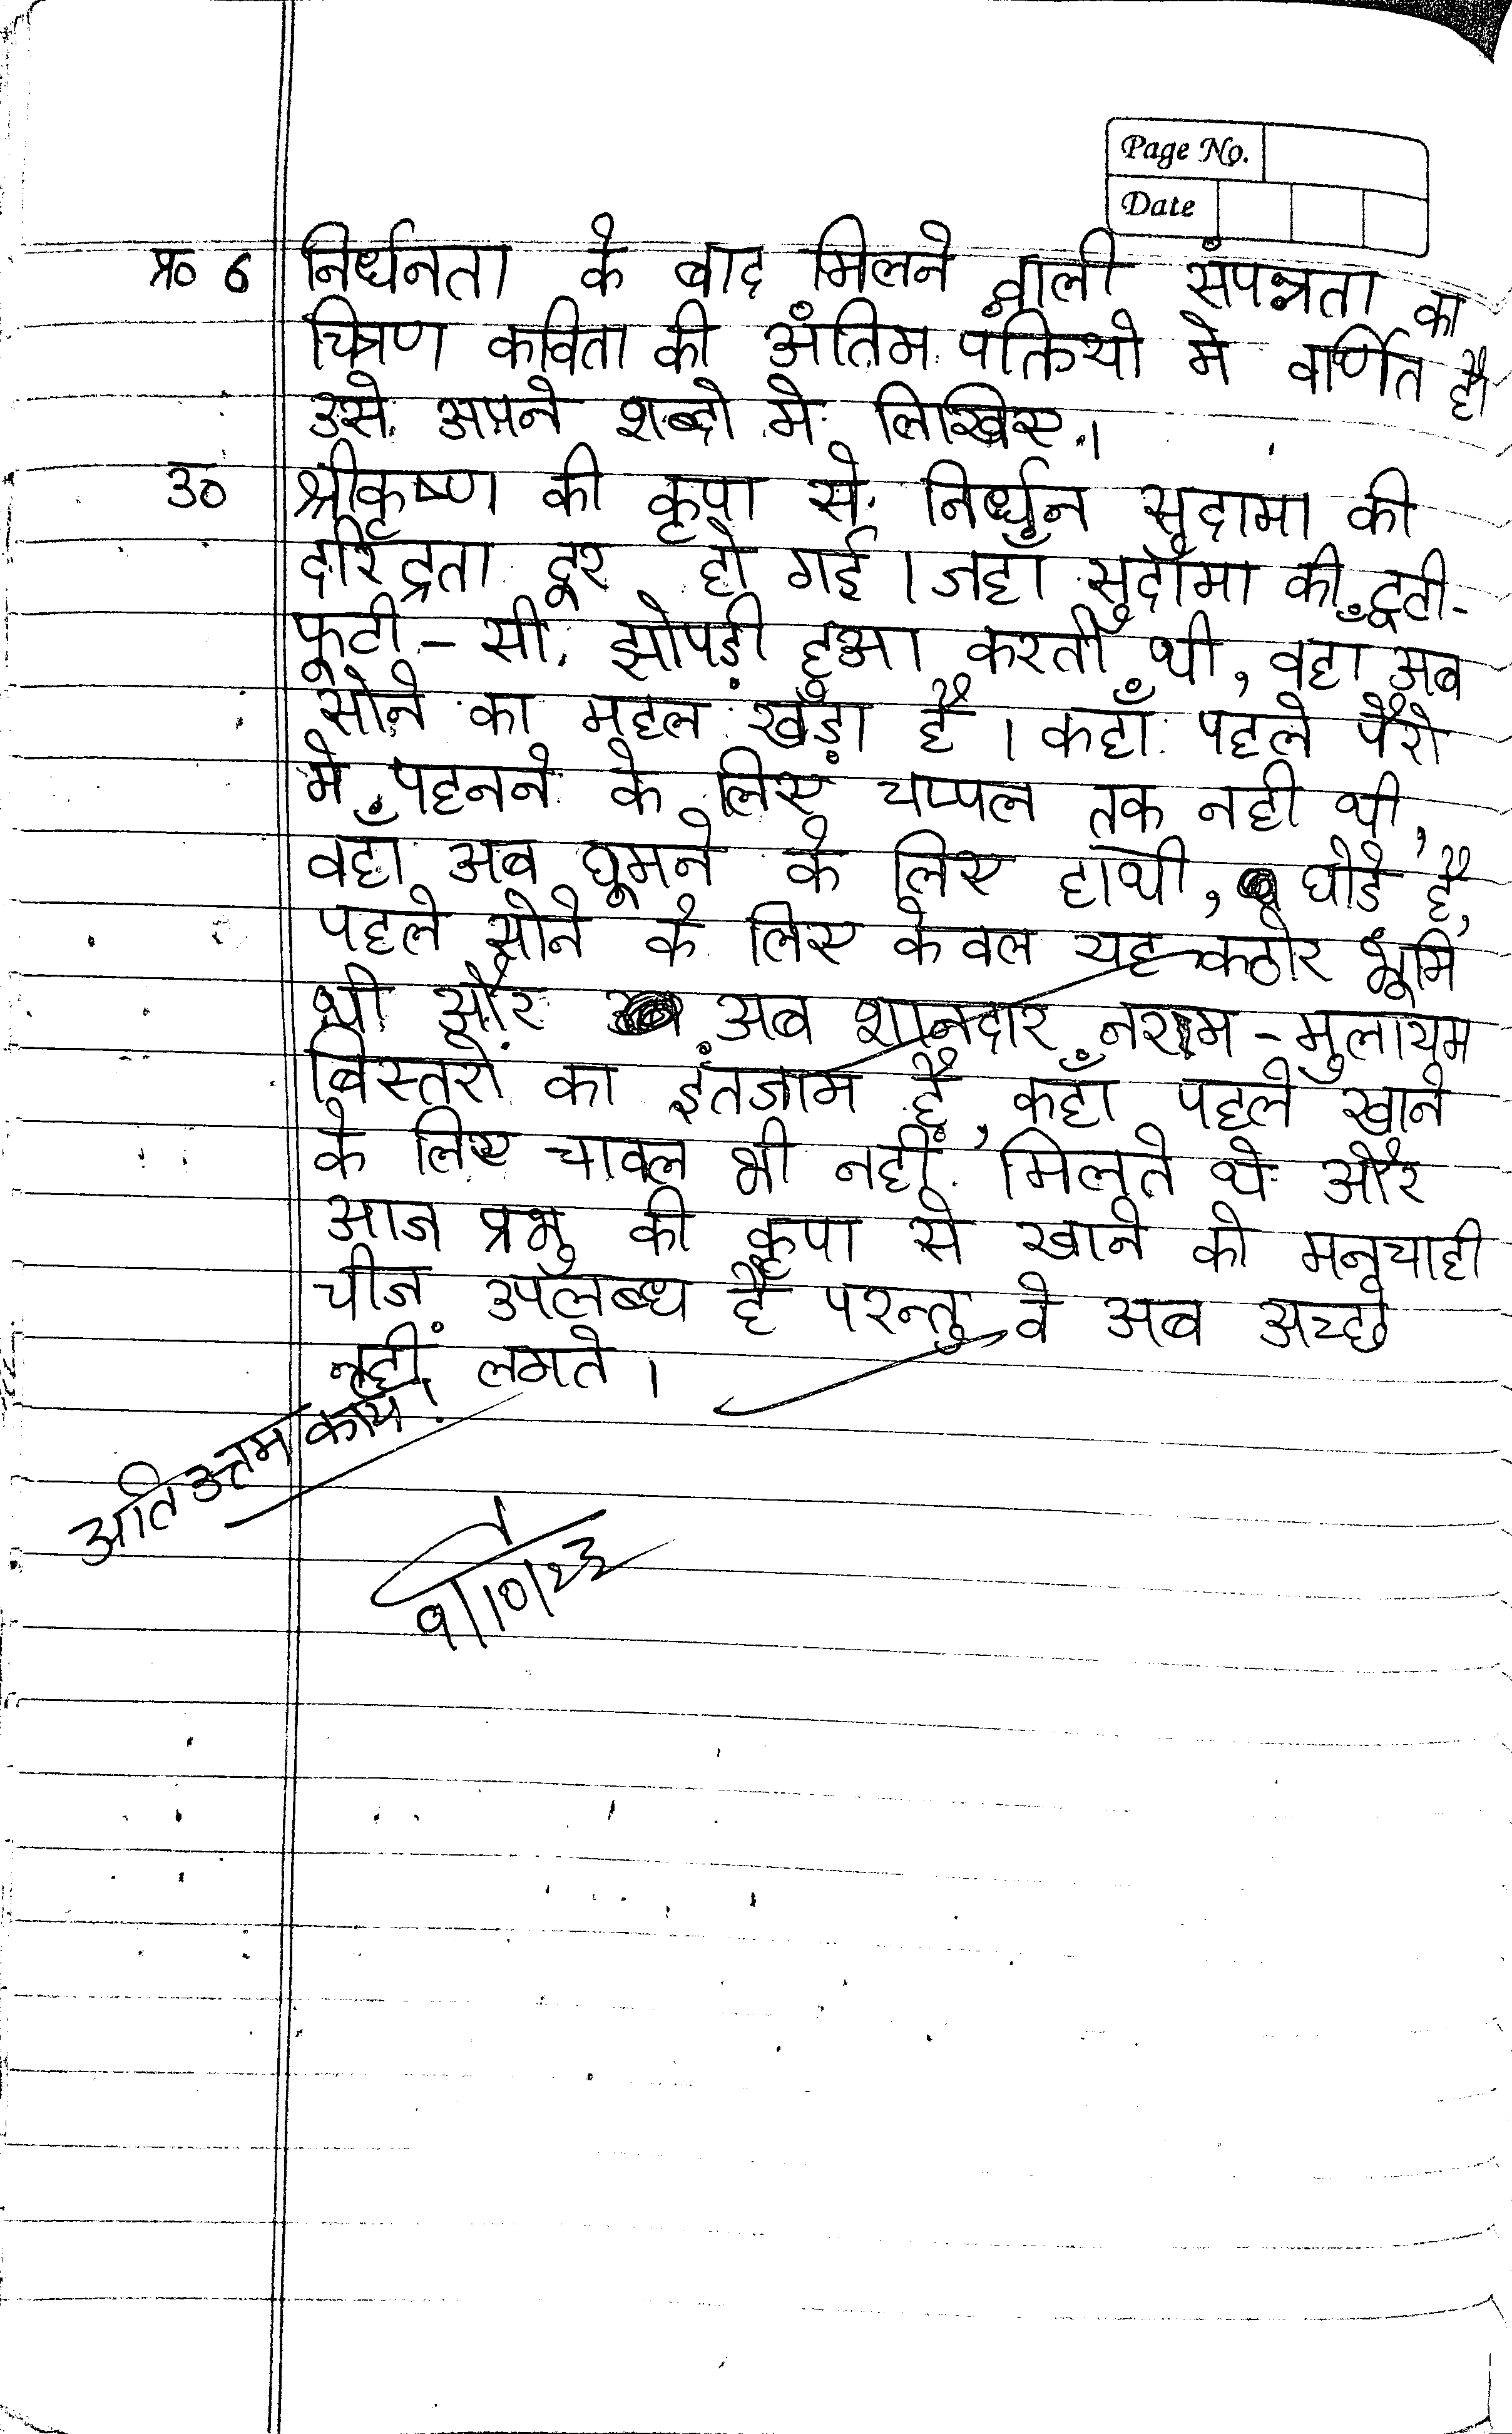 Page No.
Date
प्र० 6 निर्धनता के बाद मिलने वाली संपन्नता का
चित्रण कविता की अंतिम पंक्तियो मे वर्णित है।
उसे अपने शब्दो मे लिखिए।
उ० श्रीकृष्ण की कृपा से निर्धन सुदामा की
दरिद्रता दूर हो गई। जहाँ सुदामा की टूटी-
फूटी-सी झोपड़ी हुआ करती थी, वहा अब
सोने का महल खड़ा है। कहाँ पहले पैरो
मे पहनने के लिए चप्पल तक नही थी,
वहाँ अब घूमने के लिए हाथी, घोडे है,
पहले सोने के लिए केवल यह कठोर भूमि
थी और अब शानदार नरम-मुलायम
बिस्तरों का इंतजाम है, कहाँ पहले खाने
के लिए चावल भी नहीं मिलते थे और
आज प्रभु की कृपा से खाने को मनचाही
चीज उपलब्ध है परन्तु वे अब अच्छे
नहीं लगते।
अति उत्तम कार्य!
9/10/23